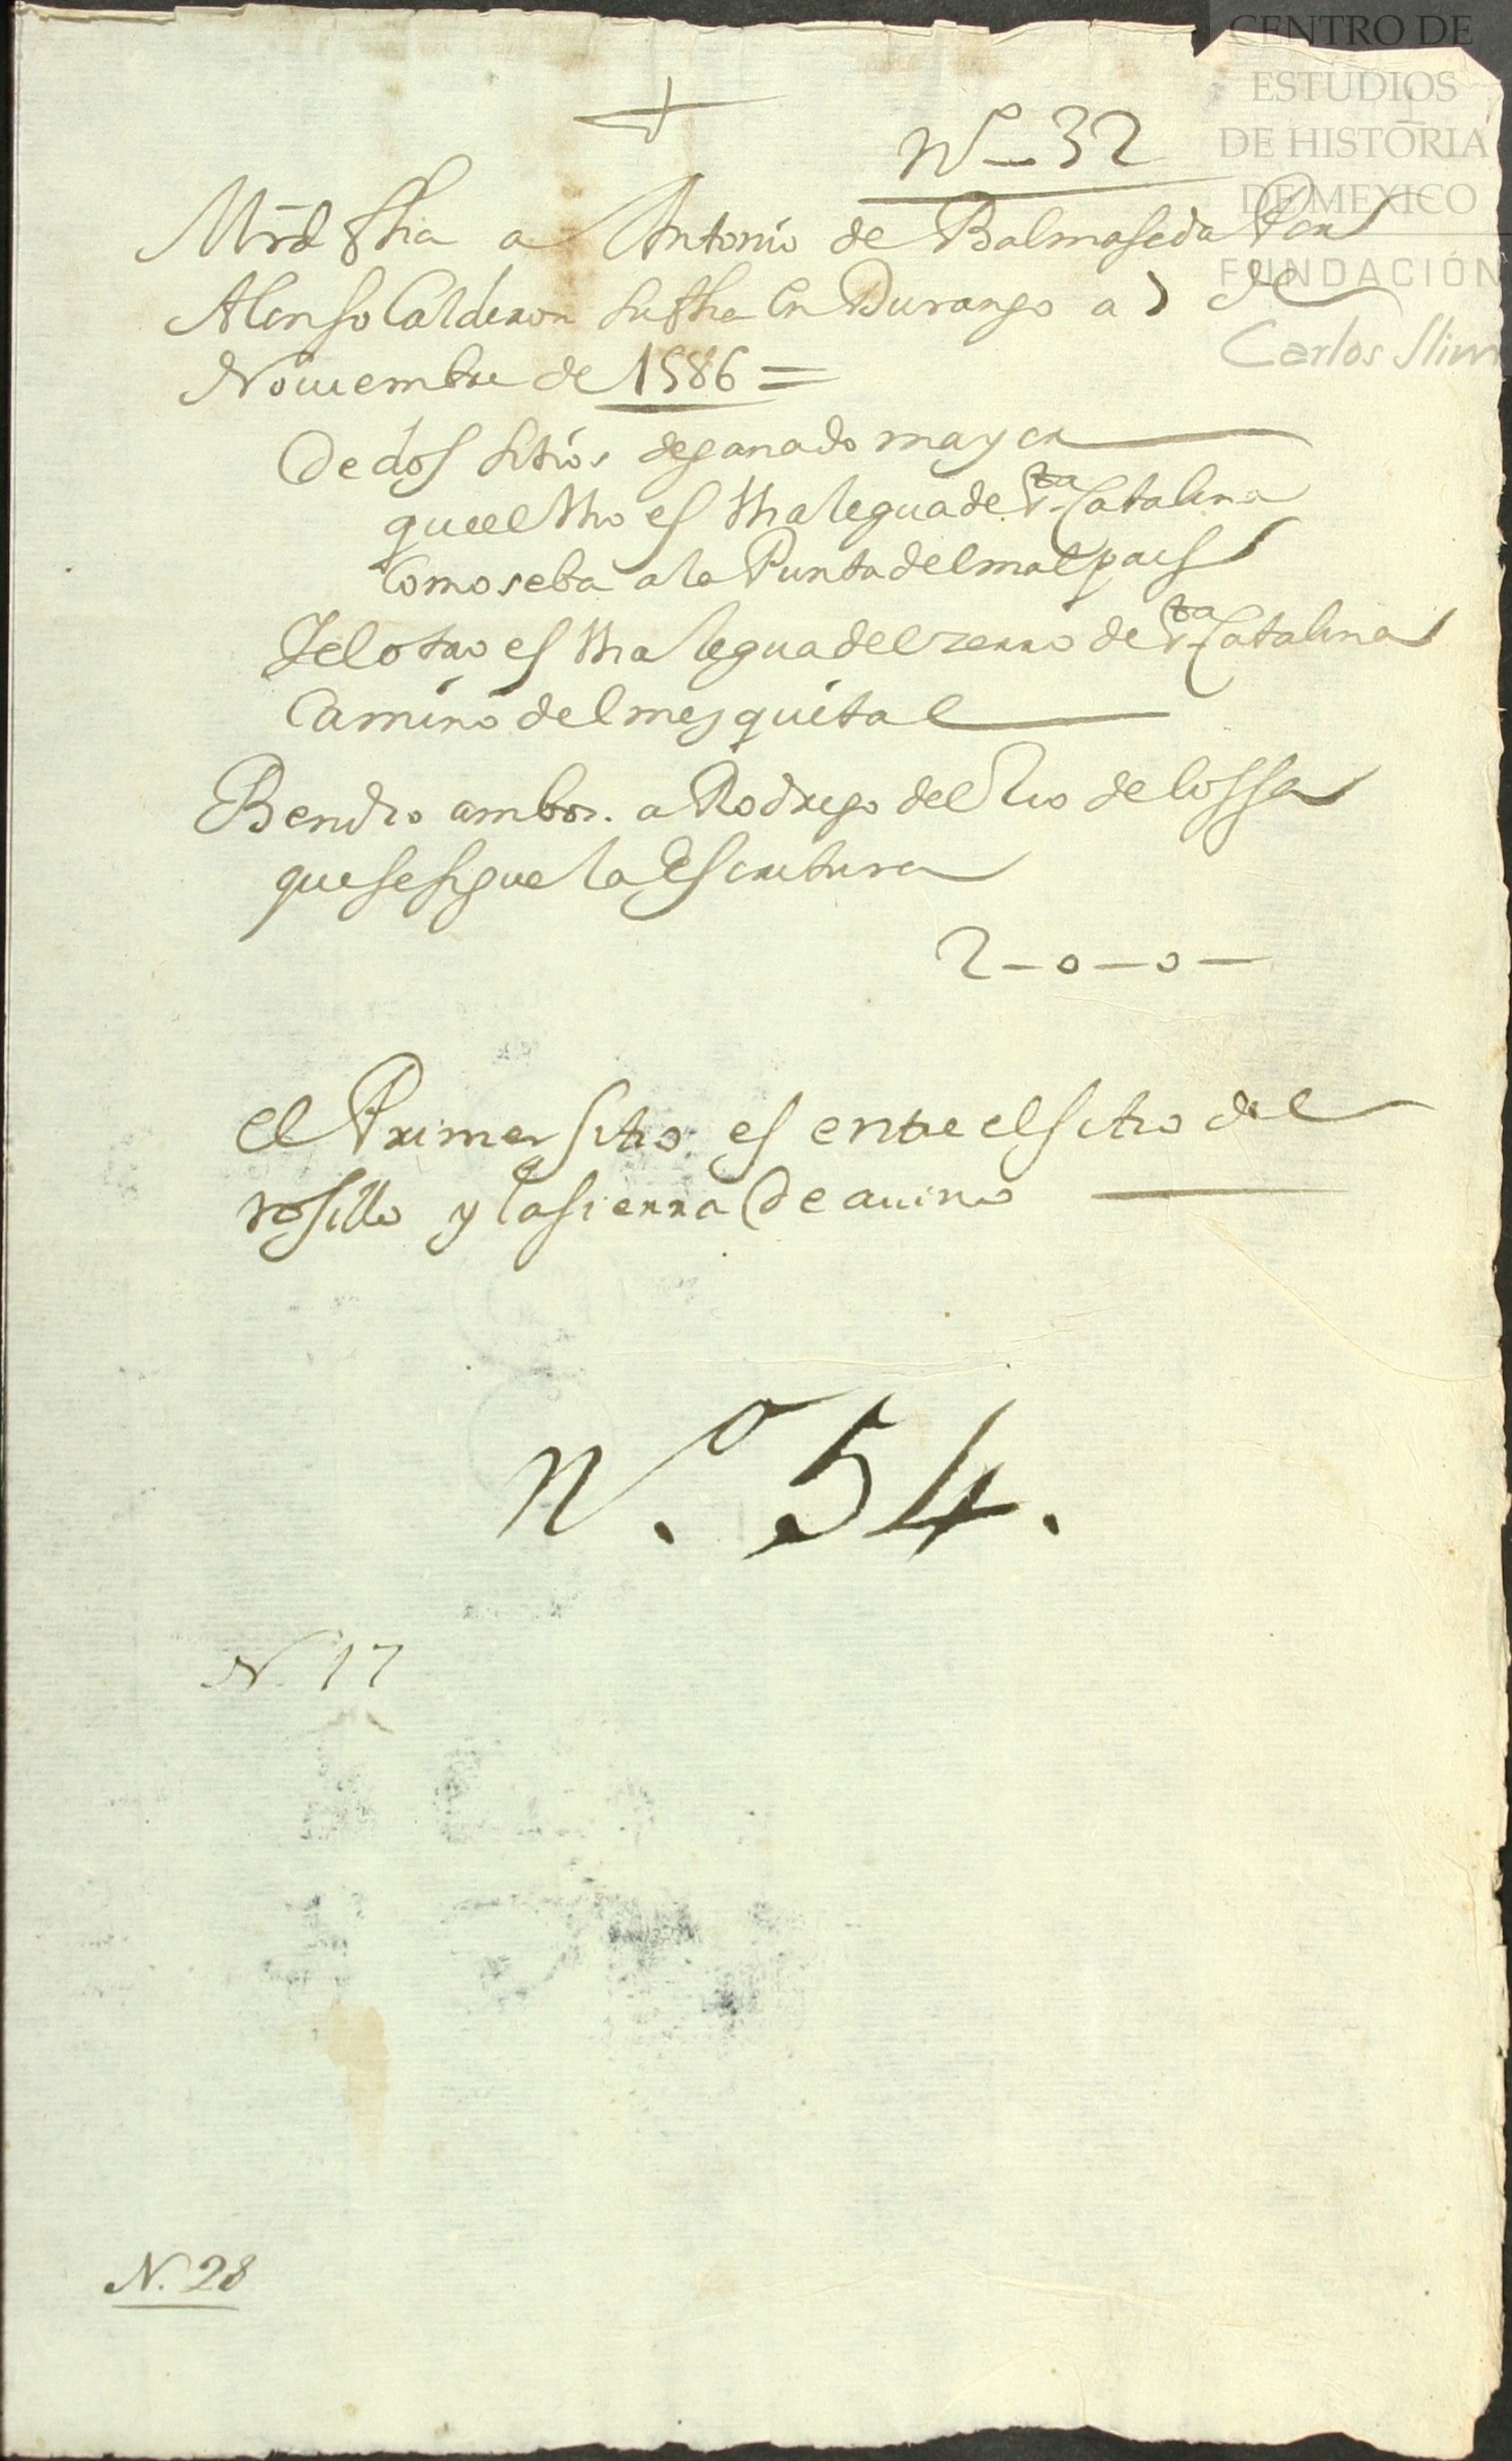 CENTRO DE
ESTUDIOS
DE HISTORIA
DE MEXICO
FUNDACIÓN
Carlos Slim
1
Nº 32
Mrd fha a Antonio de Balmaseda Por
Alonso Calderon su fha en Durango a 5 de
Nouiembre de 1586 =
De dos sitios de ganado mayor
que el Vno es Vna legua de Sta Catalina
Como se ba a la Punta del malpais
Y el otro es Vna legua del zerro de Sta Catalina
Camino del mesquital
Bendio ambos. a Rodrigo del Rio de lossa
que se sigue la Escritura
2-o-o-
el Primer sitio es entre el sitio del
rosillo y la sierra de auino
Nº. 54.
N. 17
N. 28